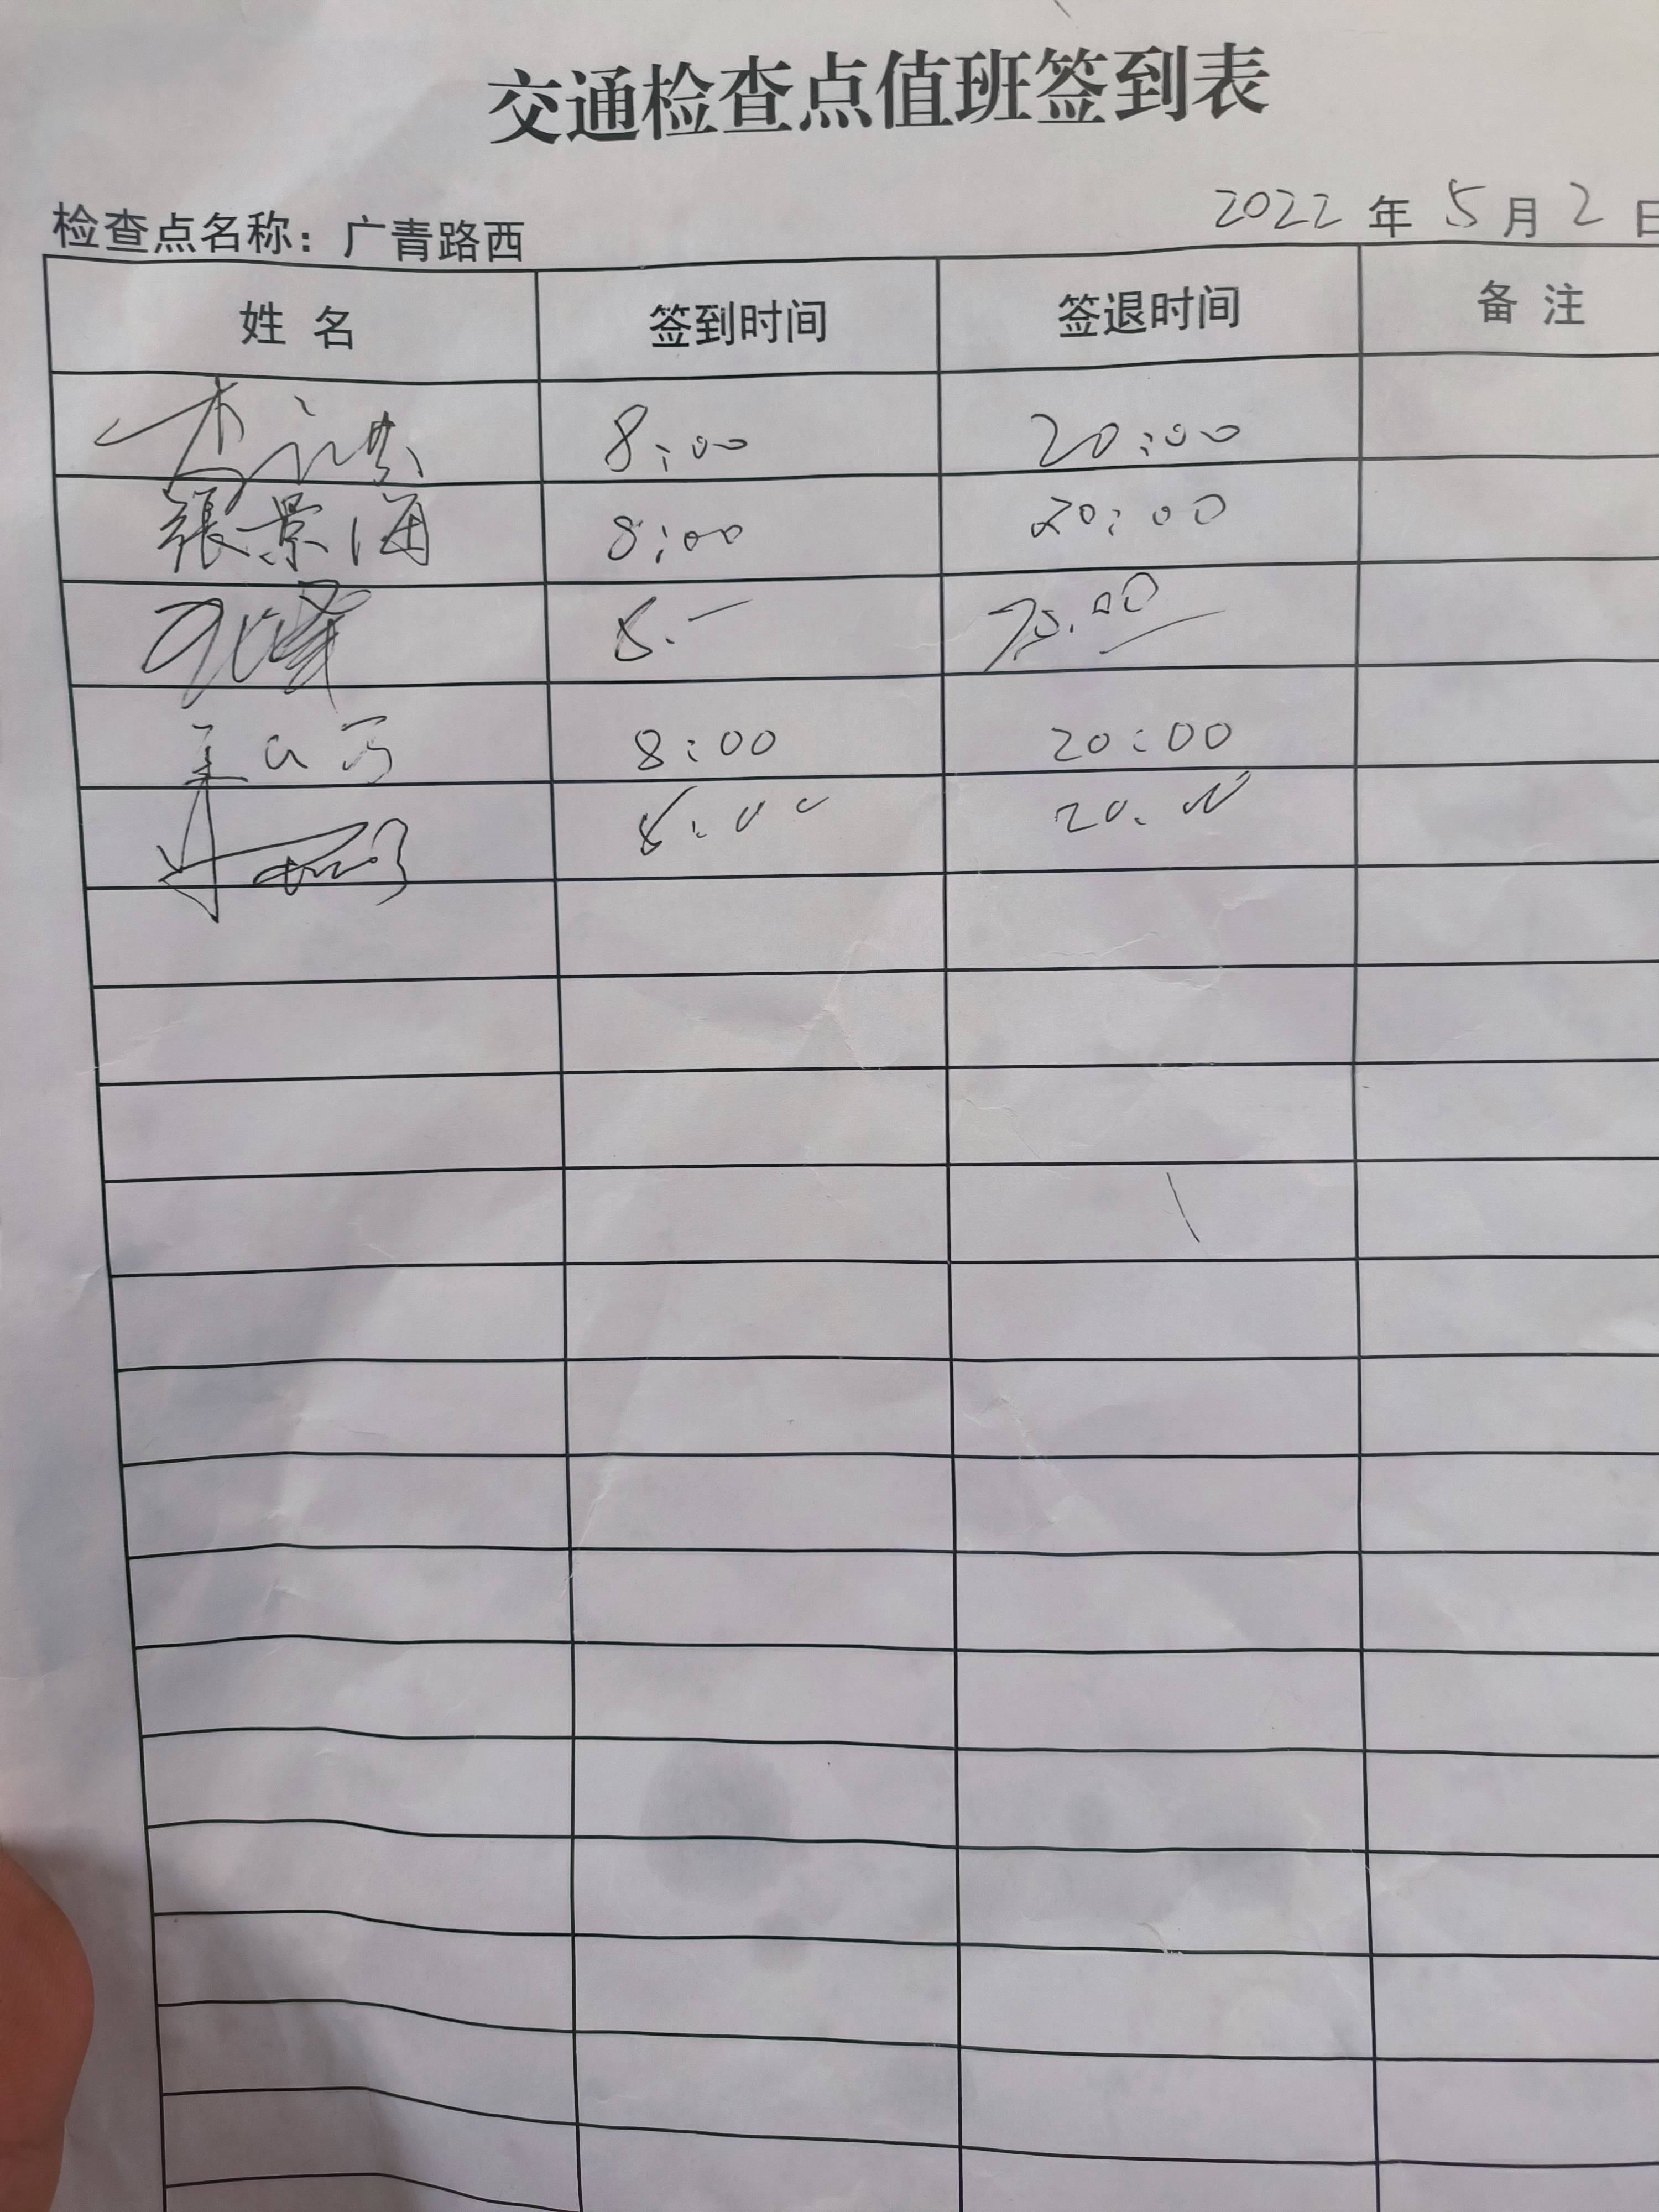 交通检查点值班签到表
检查点名称：广青路西 2022年5月2日
姓名 签到时间 签退时间 备注
8:00 20:00
張景海 8:00 20:00
8:00 20:00
8:00 20:00